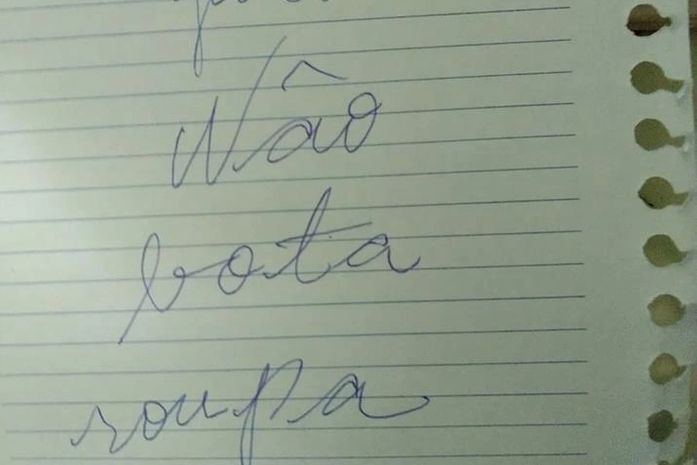 Nâo
bota
roupa